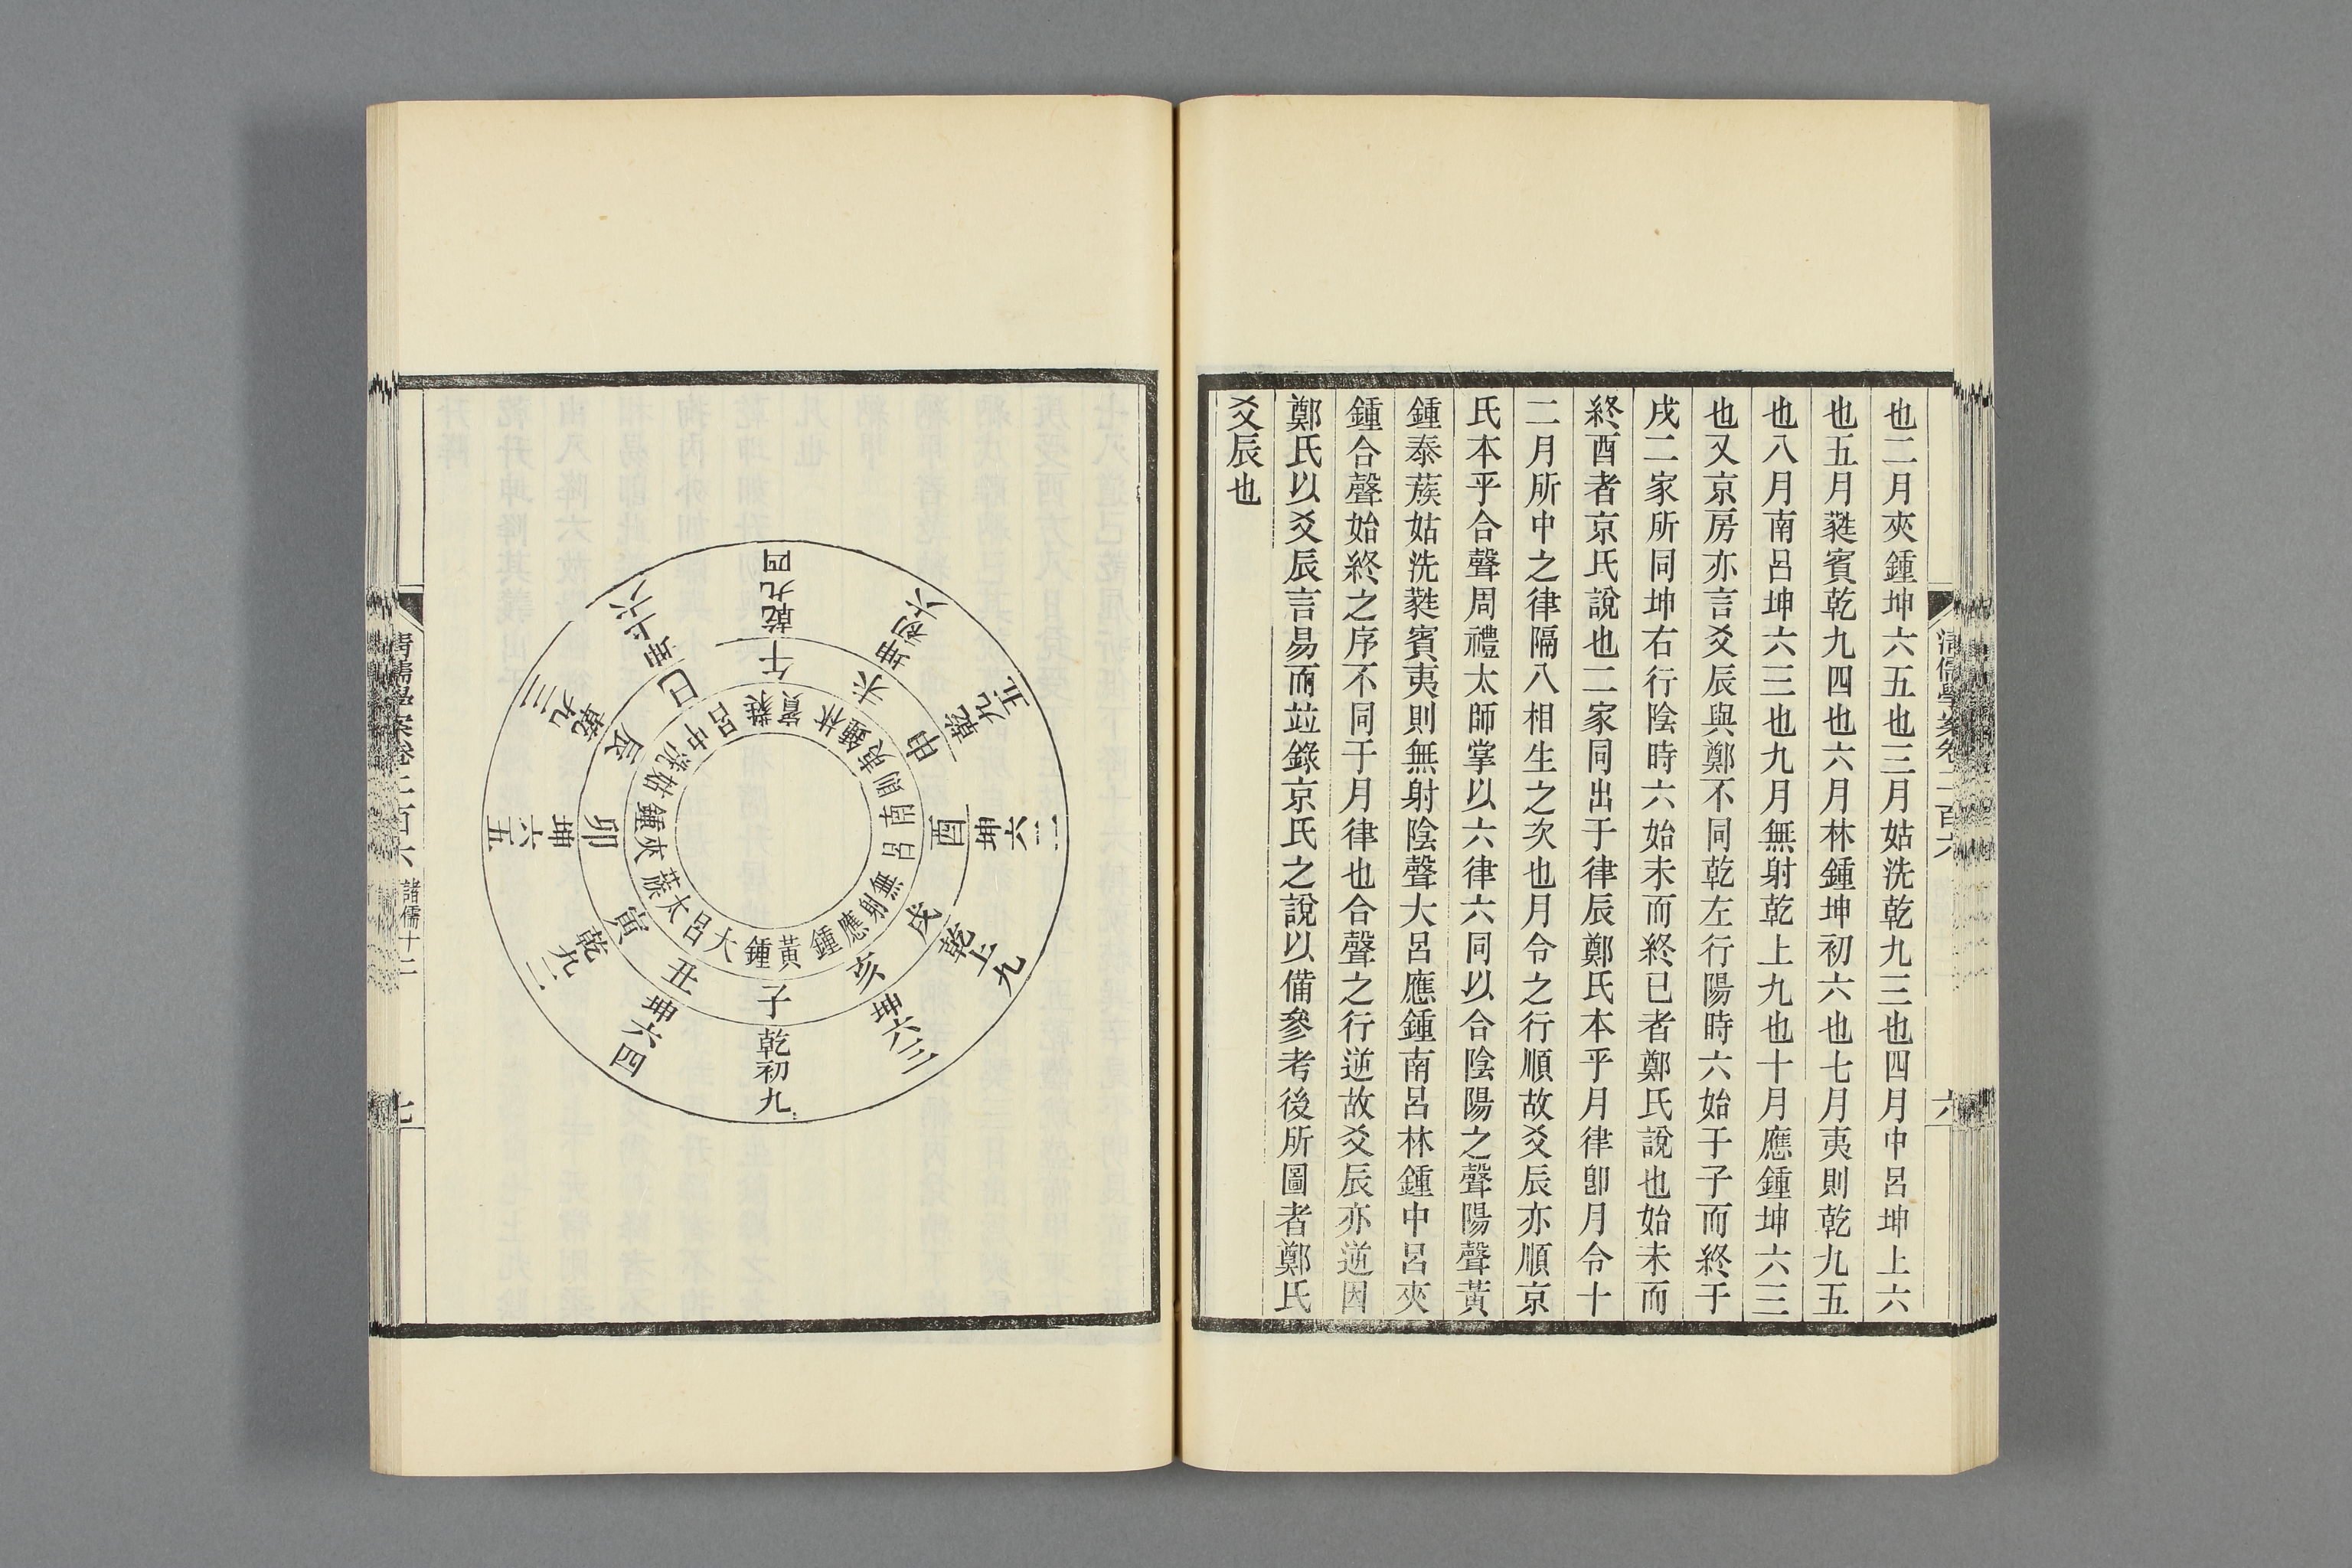 也二月夾鍾坤六五也三月姑洗乾九三也四月中呂坤上六
也五月蕤賓乾九四也六月林鍾坤初六也七月夷則乾九五
也八月南呂坤六三也九月無射乾上九也十月應鍾坤六三
也又京房亦言爻辰與鄭不同乾左行陽時六始于子而終于
戌二家所同坤右行陰時六始未而終已者鄭氏說也始未而
終酉者京氏說也二家同出于律辰鄭氏本乎月律卽月令十
二月所中之律隔八相生之次也月令之行順故爻辰亦順京
氏本乎合聲周禮太師掌以六律六同以合陰陽之聲陽聲黃
鍾泰蔟姑洗蕤賓夷則無射陰聲大呂應鍾南呂林鍾中呂夾
鍾合聲始終之序不同于月律也合聲之行逆故爻辰亦逆因
鄭氏以爻辰言易而竝錄京氏之說以備參考後所圖者鄭氏
爻辰也
清儒學案卷二百六
六
乾初九
坤六四
乾九二
坤六五
乾九三
坤上六
乾九四
坤初六
乾九五
坤六二
乾上九
坤六三
子
丑
寅
卯
辰
巳
午
未
申
酉
戌
亥
黃鍾
大呂
太蔟
夾鍾
姑洗
中呂
蕤賓
林鍾
夷則
南呂
無射
應鍾
清儒學案卷二百六
諸儒十二
七